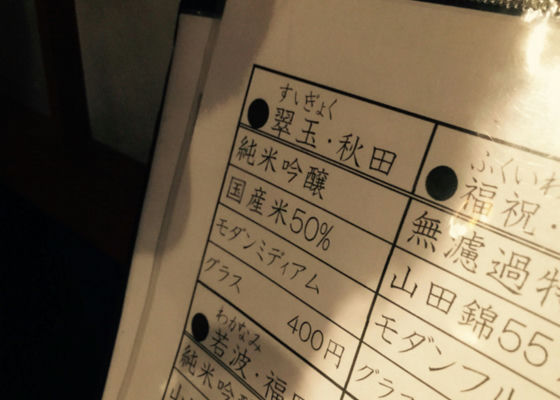 すいぎょく
●翠玉・秋田
純米吟醸
国産米50%
モダンミディアム
グラス
400円
わかなみ
●若波・福
純米吟
山
ふくいわ
●福祝・
無濾過特
山田錦55
モダンフル
グラス